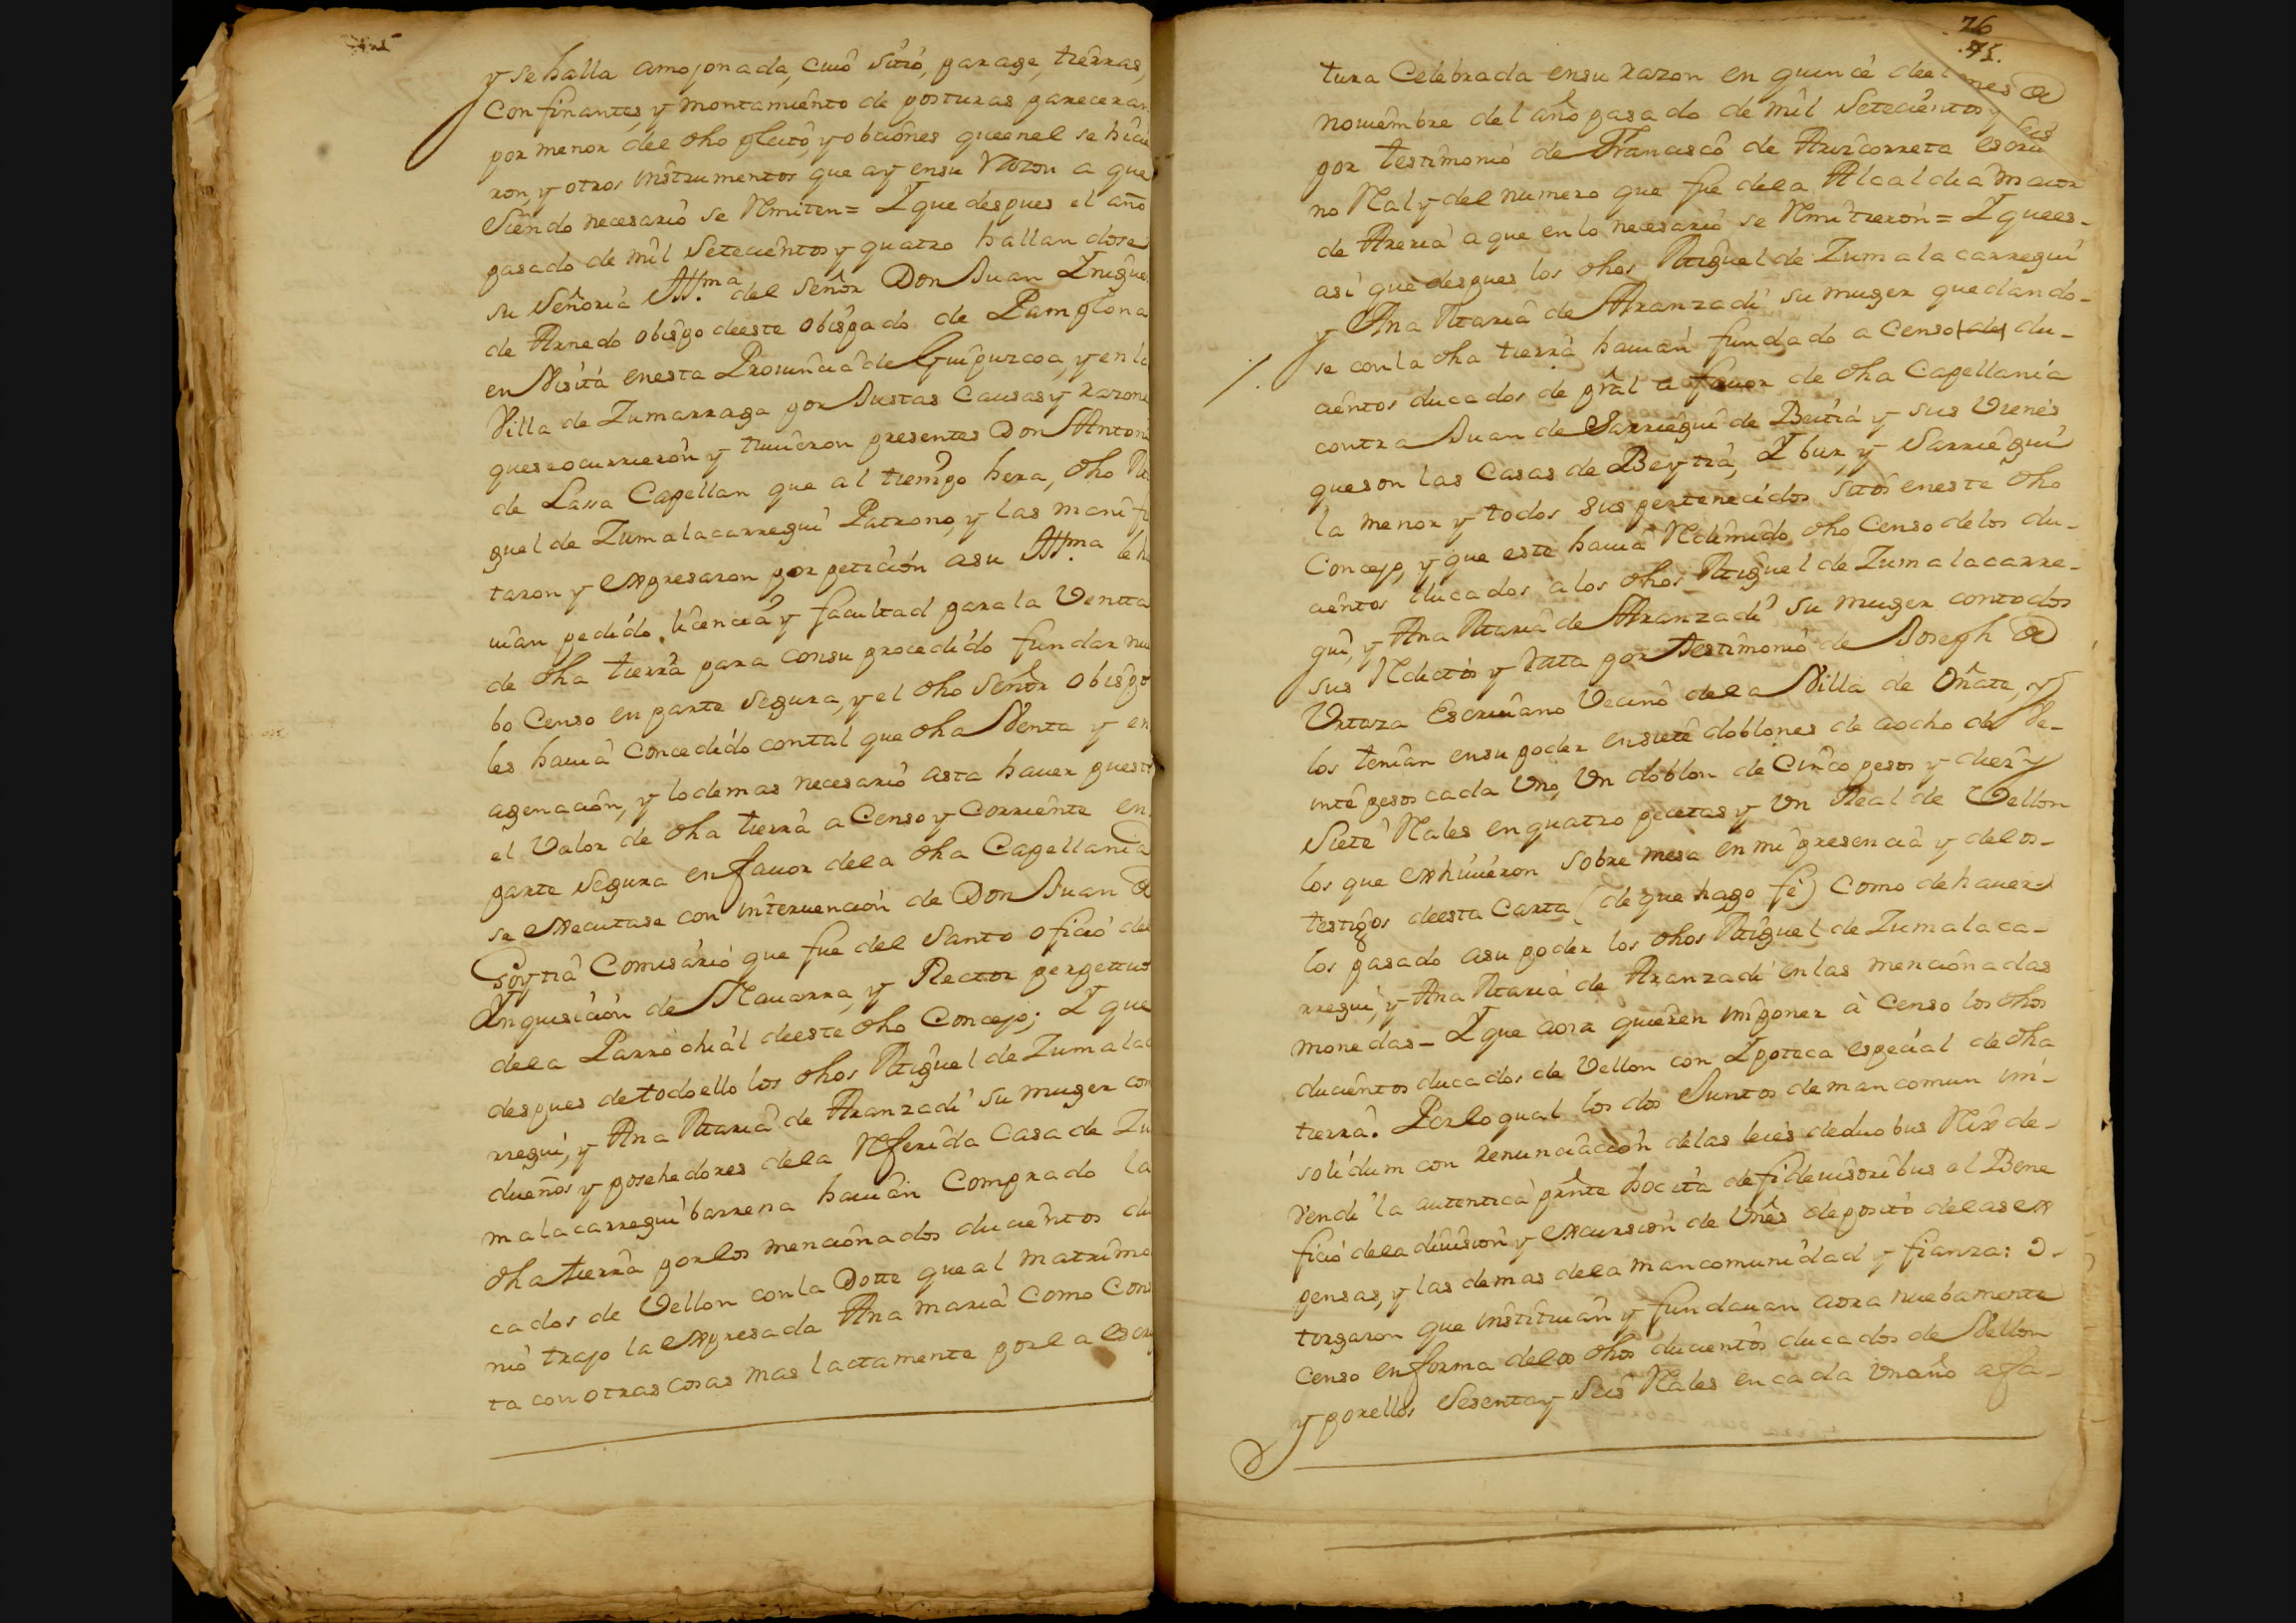 y se halla amojonada, cuio sitio, parage, tierras,
confinantes, y montamiento de posturas pareceran
por menor del dho pleito, y obciones que en el se hicie
ron, y otros instrumentos que ay en su razon a que
siendo necesario se Rmiten = Y que despues el año
pasado de mil setecientos y quatro hallandose
su señoria Yllma del señor Don Juan Yñigue
de Arnedo obispo de este obispado de Pamplona
en Visita en esta Provincia de Guipuzcoa, y en la
Villa de Zumarraga por Justas Causas y razone
ques ocurrieron y tuuieron presentes Don Antoni
de Lassa Capellan que al tiempo hera, dho Mi
guel de Zumalacarregui Patrono, y las manifes
taron y expresaron por peticion a su Yllma le ha
uian pedido licencia y facultad para la Ventta
de dha tierra para con su procedido fundar nue
bo Censo en parte segura, y el dho señor obispo
les hauia concedido con tal que dha Venta y en
agenacion, y lo demas necesario asta hauer puesto
el Valor de dha tierra a Censo y Corriente en
parte segura en fauor de la dha Capellania
se executase con interuencion de Don Juan de
Beytia Comisario que fue del Santo oficio de la
Ynquisicion de Nauarra, y Rector perpettuo
de la Parrochial de este dho Concejo; Y que
despues de todo ello los dhos Miguel de Zumalac
rregui, y Ana Maria de Aranzadi su muger como
dueños y posehedores de la Referida Casa de Zu
malacarregui barrena hauian Comprado la
dha tierra por los mencionados ducientos du
cados de Vellon con la Dotte que al matrimo
nio trajo la expresada Ana maria Como Cons
ta con otras cosas mas lactamente por la escri
76
75.
tura Celebrada en su razon en quince del mes de
nouiembre del año pasado de mil setecientos y seis
por testimonio de Francisco de Arizcorreta escriu
no Rl y del numero que fue de la Alcaldia maior
de Areria a que en lo necesario se Rmitieron = Y que es-
asi que despues los dhos Miguel de Zumalacarregui
y Ana Maria de Aranzadi su muger quedando-
se con la dha tierra hauian fundado a Censo (de) du-
cientos ducados de pral a fauor de dha Capellania
contra Juan de Sarriegui de Beitia y sus Vienes
que son las Casas de Beytia, Ybur, y Sarriegui
la menor y todos sus pertenecidos sitos en este dho
Concejo, y que este hauia Redimido dho Censo de los du-
cientos ducados a los dhos Miguel de Zumalacarre-
gui, y Ana Maria de Aranzadi su muger con todos
sus Redictos y Rata por testimonio de Joseph de
Urtaza Escriuano Vecino de la Villa de Oñate, y
los tenian en su poder en siete doblones de a ocho de Ve-
inte pesos cada Uno, Un doblon de Cinco pesos y diez y
siete Reales en quatro pecetas y Un Real de Vellon
los que exhiuieron sobre mesa en mi presencia y de los-
testigos de esta Carta (de que hago fe) Como de hauer-
los pasado a su poder los dhos Miguel de Zumalaca-
rregui, y Ana Maria de Aranzadi en las mencionadas
monedas- Y que aora quieren imponer a Censo los dhos
ducientos ducados de Vellon con Ypoteca especial de dha
tierra. Por lo qual los dos Juntos de mancomun in-
solidum con renunciacion de las leies de duobus Rix de-
vendi la autentica prnte hocita de fideiusoribus el Bene
ficio de la diuision y excursion de Vnes deposito de las ex
pensas, y las demas de la mancomunidad y fianza: o-
torgaron que instituian y fundauan aora nuebamente
Censo en forma de los dhos ducientos ducados de Vellon
y por ellos sesenta y seis Reales en cada Un año a fa-